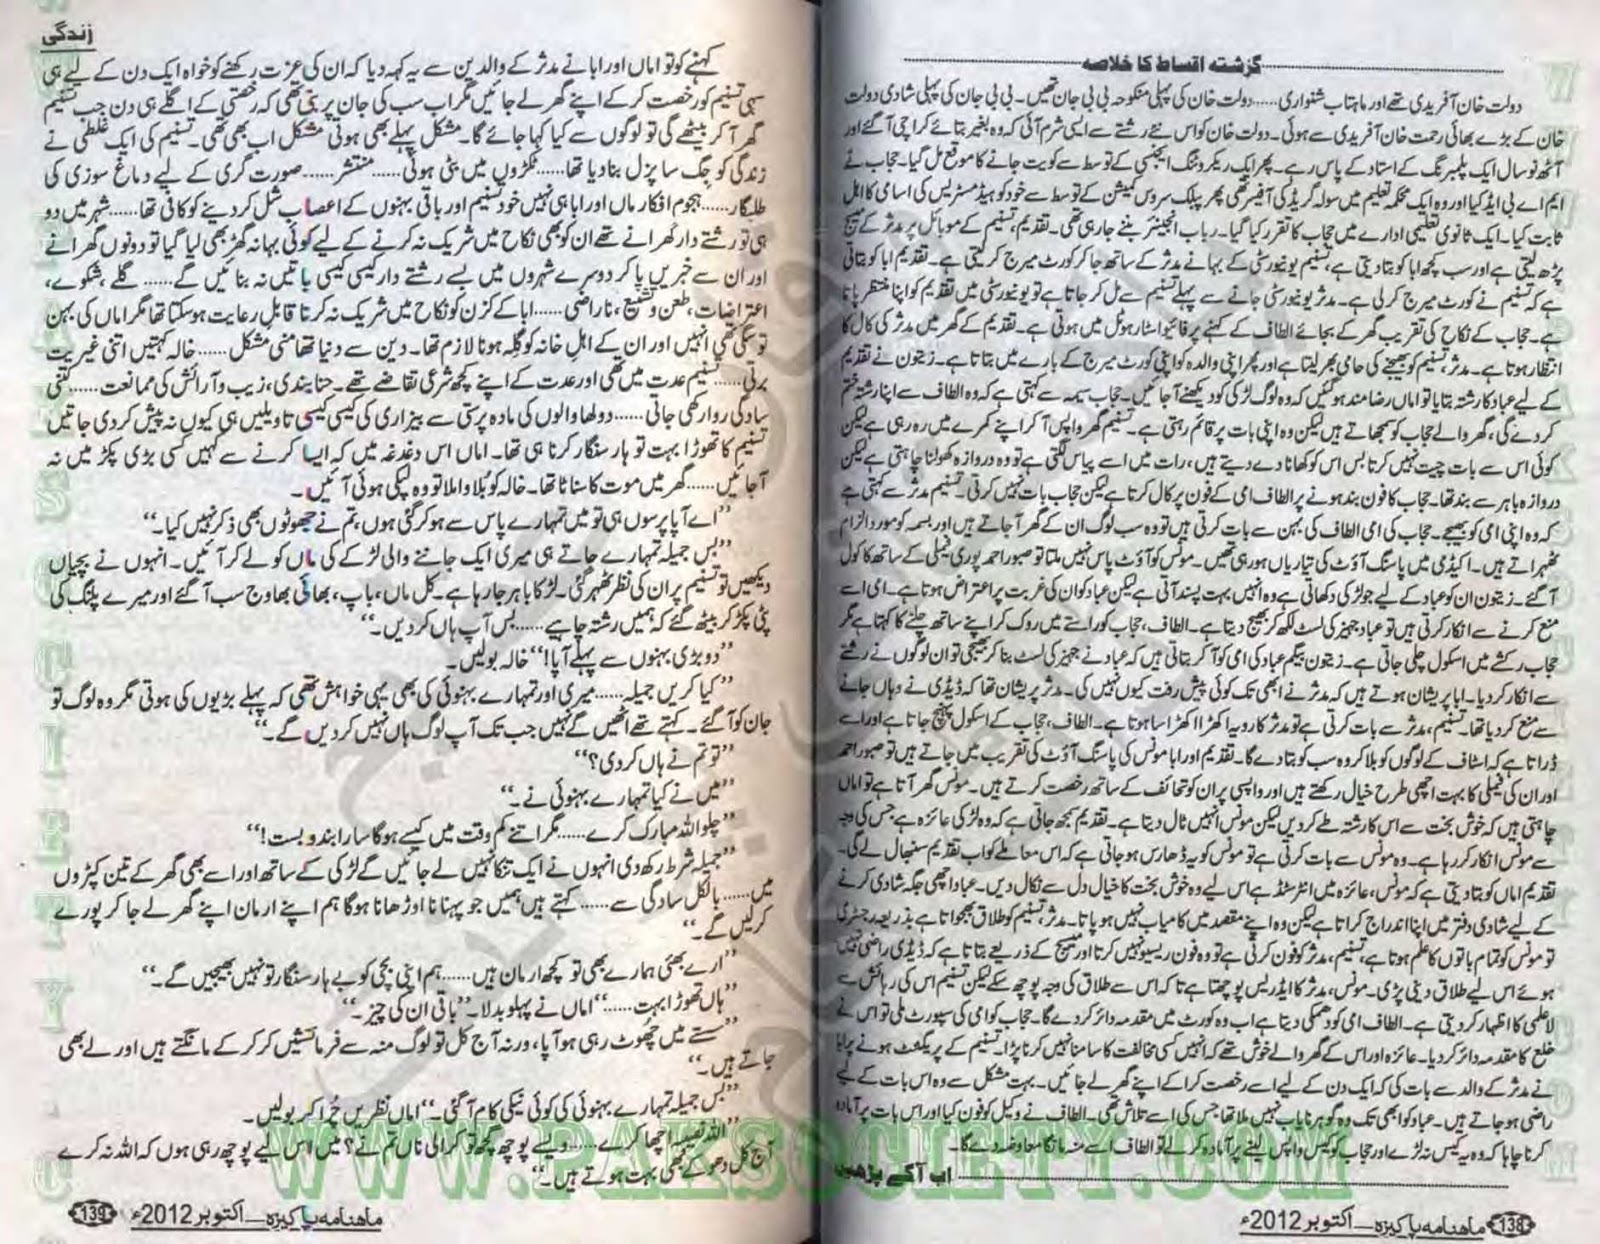 گزشتہ اقساط کا خلاصہ
دولت خان آفریدی تھے اور ماہتاب شنواری...... دولت خان کی پہلی منکوحہ بی بی جان تھیں۔ بی بی جان کی پہلی شادی دولت
خان کے بڑے بھائی رحمت خان آفریدی سے ہوئی۔ دولت خان کو اس نئے رشتے سے ایسی شرم آئی کہ وہ بغیر بتائے کراچی آ گئے اور
آٹھ نو سال ایک پلمبرنگ کے استاد کے پاس رہے۔ پھر ایک ریکروٹنگ ایجنسی کے توسط سے کویت جانے کا موقع مل گیا۔ حجاب نے
ایم اے بی ایڈ کیا اور وہ ایک محکمہ تعلیم میں سولہ گریڈ کی آفیسر تھی پھر پبلک سروس کمیشن کے توسط سے خود کو ہیڈ مسٹریس کی اسامی کا اہل
ثابت کیا۔ ایک ثانوی تعلیمی ادارے میں حجاب کا تقرر کیا گیا۔ رباب انجینئر بننے جا رہی تھی۔ تقدیم، تسنیم کے موبائل پر مدثر کے میسج
پڑھ لیتی ہے اور سب کچھ ابا کو بتا دیتی ہے، تسنیم یونیورسٹی کے بہانے مدثر کے ساتھ جا کر کورٹ میرج کر لیتی ہے۔ تقدیم ابا کو بتاتی
ہے کہ تسنیم نے کورٹ میرج کر لی ہے۔ مدثر یونیورسٹی جانے سے پہلے تسنیم سے مل کر جاتا ہے تو یونیورسٹی میں تقدیم کو اپنا منتظر پاتا
ہے۔ حجاب کے نکاح کی تقریب گھر کے بجائے الطاف کے کہنے پر فائیو اسٹار ہوٹل میں ہوتی ہے۔ تقدیم کے گھر میں مدثر کی کال کا
انتظار ہوتا ہے۔ مدثر، تسنیم کو بھیجنے کی حامی بھر لیتا ہے اور پھر اپنی والدہ کو اپنی کورٹ میرج کے بارے میں بتاتا ہے۔ زیتون نے تقدیم
کے لیے عباد کا رشتہ بتایا تو اماں رضامند ہو گئیں کہ وہ لوگ لڑکی کو دیکھنے آ جائیں۔ حجاب بسمہ سے کہتی ہے کہ وہ الطاف سے اپنا رشتہ ختم
کر دے گی، گھر والے حجاب کو سمجھاتے ہیں لیکن وہ اپنی بات پر قائم رہتی ہے۔ تسنیم گھر واپس آ کر اپنے کمرے میں رہ رہی ہے لیکن
کوئی اس سے بات چیت نہیں کرتا بس اس کو کھانا دے دیتے ہیں، رات میں اسے پیاس لگتی ہے تو وہ دروازہ کھولنا چاہتی ہے لیکن
دروازہ باہر سے بند تھا۔ حجاب کا فون بند ہونے پر الطاف امی کے فون پر کال کرتا ہے لیکن حجاب بات نہیں کرتی۔ تسنیم مدثر سے کہتی ہے
کہ وہ اپنی امی کو بھیجے۔ حجاب کی امی الطاف کی بہن سے بات کرتی ہیں تو وہ سب لوگ ان کے گھر آ جاتے ہیں اور بسمہ کو مورد الزام
ٹھہراتے ہیں۔ اکیڈمی میں پاسنگ آؤٹ کی تیاریاں ہو رہی تھیں۔ مونس کو آؤٹ پاس نہیں ملتا تو صبور احمد پوری فیملی کے ساتھ کاکول
آ گئے۔ زیتون ان کو عباد کے لیے جو لڑکی دکھاتی ہے وہ انہیں بہت پسند آتی ہے لیکن عباد کو ان کی غربت پر اعتراض ہوتا ہے۔ امی اسے
منع کرنے سے انکار کرتی ہیں تو عباد جہیز کی لسٹ لکھ کر بھیج دیتا ہے۔ الطاف، حجاب کو راستے میں روک کر اپنے ساتھ چلنے کا کہتا ہے مگر
حجاب رکشے میں اسکول چلی جاتی ہے۔ زیتون بیگم عباد کی امی کو آ کر بتاتی ہیں کہ عباد نے جہیز کی لسٹ بنا کر بھیجی تو ان لوگوں نے رشتے
سے انکار کر دیا۔ ابا پریشان ہوتے ہیں کہ مدثر نے ابھی تک کوئی پیش رفت کیوں نہیں کی۔ مدثر پریشان تھا کہ ڈیڈی نے وہاں جانے
سے منع کر دیا تھا۔ تسنیم، مدثر سے بات کرتی ہے تو مدثر کا رویہ اکھڑا اکھڑا سا ہوتا ہے۔ الطاف، حجاب کے اسکول پہنچ جاتا ہے اور اسے
ڈراتا ہے کہ اسٹاف کے لوگوں کو بلا کر وہ سب کو بتا دے گا۔ تقدیم اور ابا مونس کی پاسنگ آؤٹ کی تقریب میں جاتے ہیں تو صبور احمد
اور ان کی فیملی کا بہت اچھی طرح خیال رکھتے ہیں اور واپسی پر ان کو تحائف کے ساتھ رخصت کرتے ہیں۔ مونس گھر آتا ہے تو اماں
چاہتی ہیں کہ خوش بخت سے اس کا رشتہ طے کر دیں لیکن مونس انہیں ٹال دیتا ہے۔ تقدیم سمجھ جاتی ہے کہ وہ لڑکی عائزہ ہے جس کی وجہ
سے مونس انکار کر رہا ہے۔ وہ مونس سے بات کرتی ہے تو مونس کو یہ ڈھارس ہو جاتی ہے کہ اس معاملے کو اب تقدیم سنبھال لے گی۔
تقدیم اماں کو بتا دیتی ہے کہ مونس، عائزہ میں انٹرسٹڈ ہے اس لیے وہ خوش بخت کا خیال دل سے نکال دیں۔ عباد اچھی جگہ شادی کرنے
کے لیے شادی دفتر میں اپنا اندراج کراتا ہے لیکن وہ اپنے مقصد میں کامیاب نہیں ہو پاتا۔ مدثر، تسنیم کو طلاق بھجواتا ہے بذریعہ رجسٹری
تو مونس کو تمام باتوں کا علم ہوتا ہے، تسنیم، مدثر کو فون کرتی ہے تو وہ فون ریسیو نہیں کرتا اور میسج کے ذریعے بتاتا ہے کہ ڈیڈی راضی نہیں
ہوئے اس لیے طلاق دینی پڑی۔ مونس، مدثر کا ایڈریس پوچھتا ہے تاکہ اس سے طلاق کی وجہ پوچھ سکے لیکن تسنیم اس کی رہائش سے
لاعلمی کا اظہار کر دیتی ہے۔ الطاف امی کو دھمکی دیتا ہے اب وہ کورٹ میں مقدمہ دائر کر دے گا۔ حجاب کو امی کی سپورٹ ملی تو اس نے
خلع کا مقدمہ دائر کر دیا۔ عائزہ اور اس کے گھر والے خوش تھے کہ انہیں کسی مخالفت کا سامنا نہیں کرنا پڑا۔ تسنیم کے پریگنٹ ہونے پر ابا
نے مدثر کے والد سے بات کی کہ ایک دن کے لیے اسے رخصت کرا کے اپنے گھر لے جائیں۔ بہت مشکل سے وہ اس بات کے لیے
راضی ہو جاتے ہیں۔ عباد کو ابھی تک وہ گوہر نایاب نہیں ملا تھا جس کی اسے تلاش تھی۔ الطاف نے وکیل کو فون کیا اور اس بات پر آمادہ
کرنا چاہا کہ وہ یہ کیس نہ لڑے اور حجاب کو کیس واپس لینے پر آمادہ کر لے تو الطاف اسے منہ مانگا معاوضہ دے گا۔
اب آگے پڑھیں
ماہنامہ پاکیزہ۔ اکتوبر 2012ء
138
زندگی
کہنے کو تو اماں اور ابا نے مدثر کے والدین سے یہ کہہ دیا کہ ان کی عزت رکھنے کو خواہ ایک دن کے لیے ہی
سہی تسنیم کو رخصت کر کے اپنے گھر لے جائیں مگر اب سب کی جان پر بنی تھی کہ رخصتی کے اگلے ہی دن جب تسنیم
گھر آ کر بیٹھے گی تو لوگوں سے کیا کہا جائے گا۔ مشکل پہلے بھی ہوئی مشکل اب بھی تھی۔ تسنیم کی ایک غلطی نے
زندگی کو جگ سا پزل بنا دیا تھا...... ٹکڑوں میں بٹی ہوئی...... منتشر...... صورت گری کے لیے دماغ سوزی کی
طلبگار...... ہجوم افکار ماں اور ابا ہی نہیں خود تسنیم اور باقی بہنوں کے اعصاب شل کر دینے کو کافی تھا...... شہر میں دو
ہی تو رشتے دار گھرانے تھے ان کو بھی نکاح میں شریک نہ کرنے کے لیے کوئی بہانہ گھڑ بھی لیا گیا تو دونوں گھرانے
اور ان سے خبریں پا کر دوسرے شہروں میں بسے رشتے دار کیسی کیسی باتیں نہ بنائیں گے...... گلے، شکوے،
اعتراضات، طعن و تشنیع، ناراضی...... ابا کے کزن کو نکاح میں شریک نہ کرنا قابلِ رعایت ہو سکتا تھا مگر اماں کی بہن
تو سگی تھی انہیں اور ان کے اہلِ خانہ کو گلہ ہونا لازم تھا۔ دین سے دنیا تھا منی مشکل...... خالہ کہتیں اتنی غیریت
برتی...... تسنیم عدت میں تھی اور عدت کے اپنے کچھ شرعی تقاضے تھے۔ حنا بندی، زیب و آرائش کی ممانعت...... کتنی
سادگی روا رکھی جاتی...... دولہا والوں کی مادہ پرستی سے بیزاری کی کیسی کیسی تاویلیں ہی کیوں نہ پیش کر دی جاتیں
تسنیم کا تھوڑا بہت تو ہار سنگار کرنا ہی تھا۔ اماں اس دغدغہ میں کہ ایسا کرنے سے کہیں کسی بڑی پکڑ میں نہ
آ جائیں...... گھر میں موت کا سناٹا تھا۔ خالہ کو بلاوا ملا تو وہ لپکی ہوئی آئیں۔
”اے آپا پرسوں ہی تو میں تمہارے پاس سے ہو کر گئی ہوں، تم نے جھوٹوں بھی ذکر نہیں کیا۔“
”بس جمیلہ تمہارے جاتے ہی میری ایک جاننے والی لڑکے کی ماں کو لے کر آئیں۔ انہوں نے بچیاں
دیکھیں تو تسنیم پر ان کی نظر ٹھہر گئی۔ لڑکا باہر جا رہا ہے۔ کل ماں، باپ، بھائی بھاوج سب آ گئے اور میرے پلنگ کی
پٹی پکڑ کر بیٹھ گئے کہ ہمیں رشتہ چاہیے...... بس آپ ہاں کر دیں۔“
”دو بڑی بہنوں سے پہلے آپا!“ خالہ بولیں۔
”کیا کریں جمیلہ...... میری اور تمہارے بہنوئی کی بھی یہی خواہش تھی کہ پہلے بڑیوں کی ہوتی مگر وہ لوگ تو
جان کو آ گئے۔ کہتے تھے اٹھیں گے نہیں جب تک آپ لوگ ہاں نہیں کر دیں گے۔“
”تو تم نے ہاں کر دی؟“
”میں نے کیا تمہارے بہنوئی نے۔“
”چلو اللہ مبارک کرے...... مگر اتنے کم وقت میں کیسے ہوگا سارا بندوبست!“
”جمیلہ شرط رکھ دی انہوں نے ایک تنکا نہیں لے جائیں گے لڑکی کے ساتھ اور اسے بھی گھر کے تین کپڑوں
میں...... بالکل سادگی سے...... کہتے ہیں ہمیں جو پہنانا اوڑھانا ہوگا ہم اپنے ارمان اپنے گھر لے جا کر پورے
کر لیں گے۔“
”ارے بھئی ہمارے بھی تو کچھ ارمان ہیں...... ہم اپنی بچی کو بے ہار سنگار تو نہیں بھیجیں گے۔“
”ہاں تھوڑا بہت......“ اماں نے پہلو بدلا۔ ”باقی ان کی چیز۔“
”سستے میں چھوٹ رہی ہو آپا، ورنہ آج کل تو لوگ منہ سے فرمائشیں کر کر کے مانگتے ہیں اور لے بھی
جاتے ہیں۔“
”بس جمیلہ تمہارے بہنوئی کی کوئی نیکی کام آ گئی۔“ اماں نظریں چرا کر بولیں۔
”اللہ نصیبہ اچھا کرے...... ویسے پوچھ گچھ تو کرا لی ناں تم نے؟ میں اس لیے پوچھ رہی ہوں کہ اللہ نہ کرے
آج کل دھوکے بھی بہت ہوتے ہیں۔“
WWW.PAKSOCIETY.COM
ماہنامہ پاکیزہ۔ اکتوبر 2012ء
139